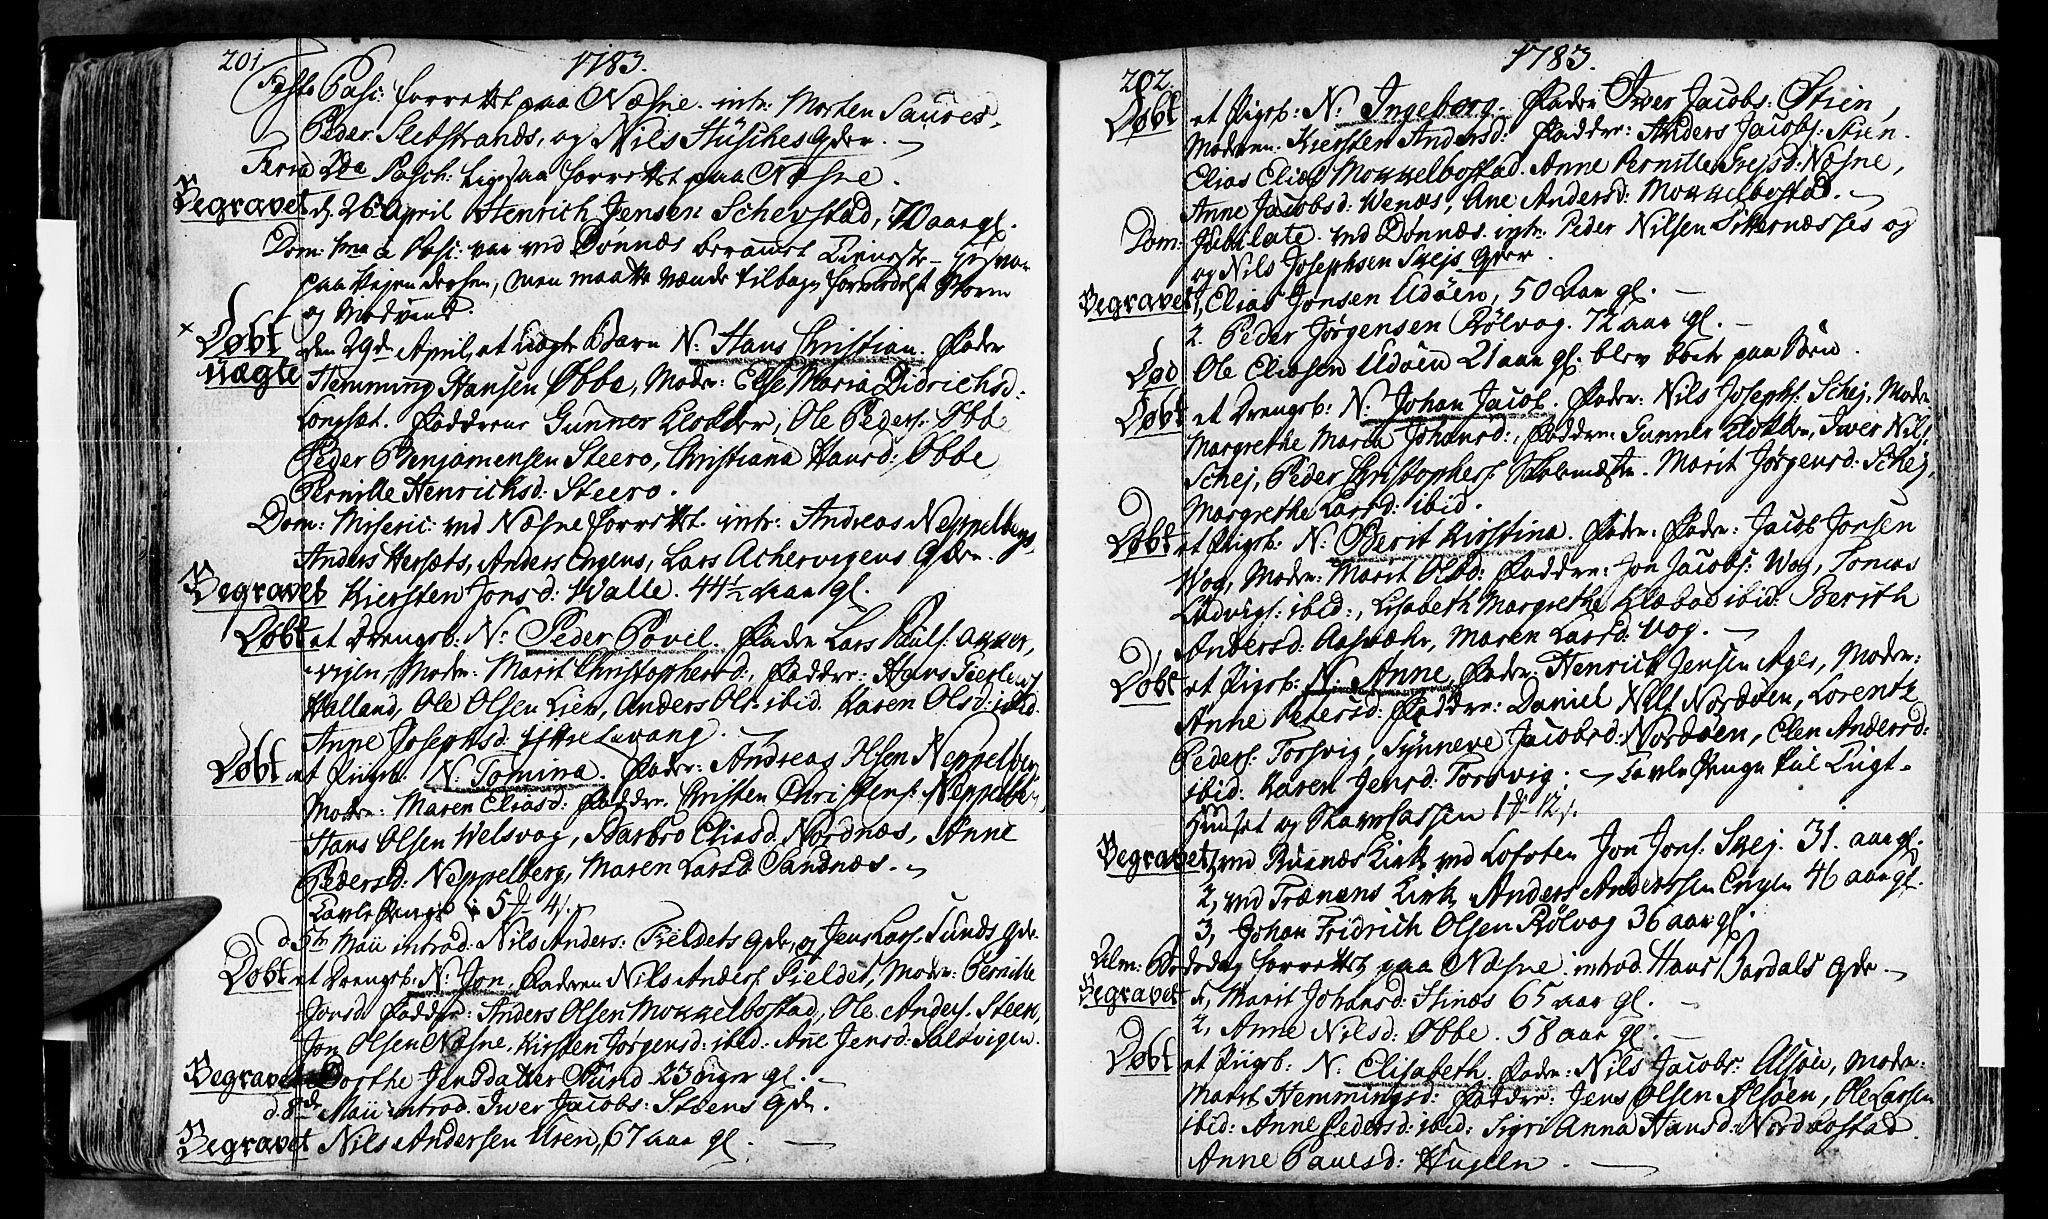 201 1783.
Festo Pasc: forrettet paa Næsne. intr: Morten Saures,
Peder Sletstrands, og Nils Hüsches qder.
Feria 2da Pasch: ligesaa forrettet paa Næsne.
Begravet d. 26 April Henrich Jensen Schevstad, 70 aar gl.
Dom: 1ma a Pasc: var ved Dønnæs berammet Tieneste
paa Rejsen dersen, men maatte vænde tilbage formedelst Storm
og Modvind.
× Døbt den 29de April, et uægte Barn N: Hans Christian. Fader
uægte Hemming Hansen Øbbe, Moder: Else Maria Didrichsd:
Longsæt. Fadderne Gunner Klokker, Ole Peders: Øbbe
Peder Benjamensen Steero, Christiana Hansd: Øbbe
Pernille Henrichsd: Steero.
Dom: Miseric: ved Næsne forrettet. intr: Andreas Neppelbergs,
Anders Hersæts, Anders Engens, Lars Achervigens Qder.
Begravet Kiersten Jonsd: Walle. 44½ aar gl.
Døbt et Drengeb: N: Peder Povel. Fader Lars Pauls: Akker,
vigen, Moder: Marit Christophersd:, Faddere: Hans
Halland, Ole Olsen Lien, Anders Ols: ibid. Karen Olsd: ibid.
Anne Josephsd.
Døbt et Pigeb: N: Tomina. Fader: Andreas Olsen Neppelberg,
Moder: Maren Eliasd: Fadder. Christen Christens: Neppelb:,
Hans Olsen Welsvog, Barbro Eliasd. Nordnæs, Anne
Pedersd: Neppelberg, Maren Larsd: Sandnæs.
Tavle Penge 5 4 s.
d. 5te Maii introd: Nils Anders: Fieldets Qde, og Jens Lars: Sunds Qde.
Døbt et Drengeb: N: Jon. Faderen Nils Anders: Fieldet, Moder: Pernille
Jonsd. Faddere: Anders Olsen Mokkelbostad, Ole Anders: Steen,
Jon Olsen Næsne, Kirsten Jørgensd: ibid: Ane Jensd: Saltvigen.
Begravet Dorthe Jensdatter Sund 23 uger gl.
d. 8de Maii introd. Iwer Jacobs: Steens Qde.
Begravet Nils Andersen Uren, 67 aar gl.
202. 1783.
Døbt et Pigeb: N: Ingeborg. Fader Iwer Jacobs: Stien,
Moderen: Kiersten Andersd: Faddre: Anders Jacobs: Stien.
Elias Elias: Mokkelbostad. Anne Pernille Næsne,
Anne Jacobsd: Wenæs, Ane Andersd: Mokkelbostad.
Dom: Jubilate. ved Dønnæs. intr: Peder Nilsen og
og Nils Josephsen Skejs Qder.
Begravet 1, Elias Jonsen Udøen, 50 aar gl.
2. Peder Jørgensen Rølvog. 72 aar gl.
Død Ole Eliasen Udøen 21 aar gl: blev borte paa Søen.
Døbt et Drengeb: N: Johan Jacob. Fader: Nils Josephs: Schej, Moder
Margrethe Maria Johansd:, Fadder: Gunner Klokker, Iwer Nils:
Schej, Peder Christophers: Skolemæster. Marit Jørgensd: Schej,
Margrethe Larsd: ibid.
Døbt et Pigeb: N: Berit Kirstina. Fader: Fader: Jacob Jonsen
Wog, Moder: Marit Olsd: Faddre: Jon Jacobs: Wog, Tomas
Ludvigs: ibid:, Lisabeth Margrethe Klæboe ibid: Berith
Andersd: Aasvær, Maren Larsd: Vog.
Døbt et Pigeb: N: Anne. Fader: Henrich Jensen Ager, Moder:
Anne Petersd: Faddre: Daniel Nils: Nordøen, Lorentz
Peders: Torsvig, Synneve Jacobsd: Nordøen, Elen Andersd:
ibid: Karen Jensd: Torsvig. Tavle Penge til Tugt-
Huuset og Skolekassen 12 s.
Begravet 1, ved Kirke ved Lofoten Jon Jons: Skej. 31. aar gl.
2, ved Trænens Kirke, Anders Anderssen Engen 46 aar gl.
3, Johan Fridrich Olsen Rølvog 36 aar gl.
Alm: Bededag forrettet paa Næsne. introd. Hans Bardals Qde
Begravet 1, Marit Johansd: Stinæs 65 aar gl.
2, Anne Nilsd: Øbbe. 58 aar gl.
Døbt et Pigeb: N: Elisabeth. Fader: Nils Jacobs: Alsøen, Moder:
Marit Hemmingsd: Faddre: Jens Olsen Alsøen, Ole Larsen
ibid: Anne Pedersd: ibid: Sigri Anna Hansd: Nordbostad.
Anne Paulsd: Hugeln.